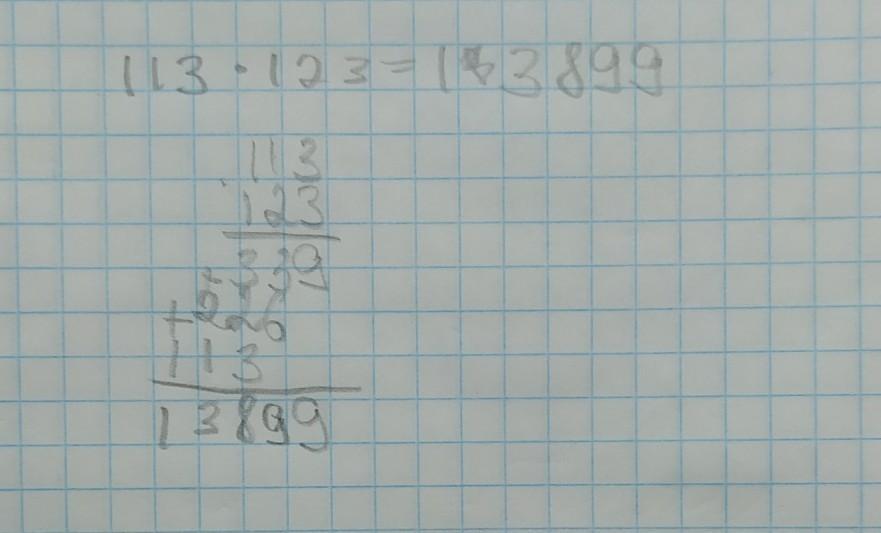 113 · 123 = 13899
113
123
339
+ 226
+ 113
13899